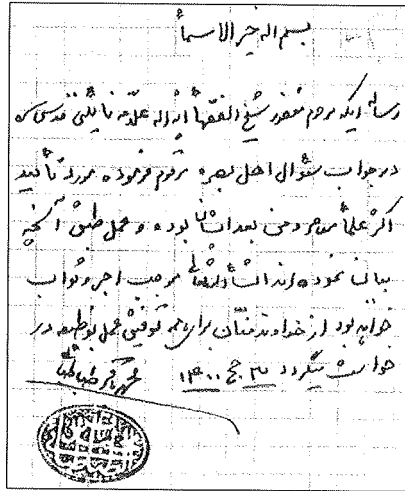 بسم الله خیر الاسماء
رساله ایکه مرحوم مغفور شیخ الفقهاء آیة الله علامه نائینی قدس سره
در جواب سؤال اهل بصره مرقوم فرموده مورد تأیید
اکثر علماء موجود من بعد ایشان بوده و عمل طبق آنچه
بیان نموده اند ان شاء الله تعالی موجب اجر و ثواب
خواهد بود از خداوند منّان برای همه توفیق عمل بوظیفه در
خواست میگردد ۳ ج ۱۴۰۰ محمد باقر طباطبائی